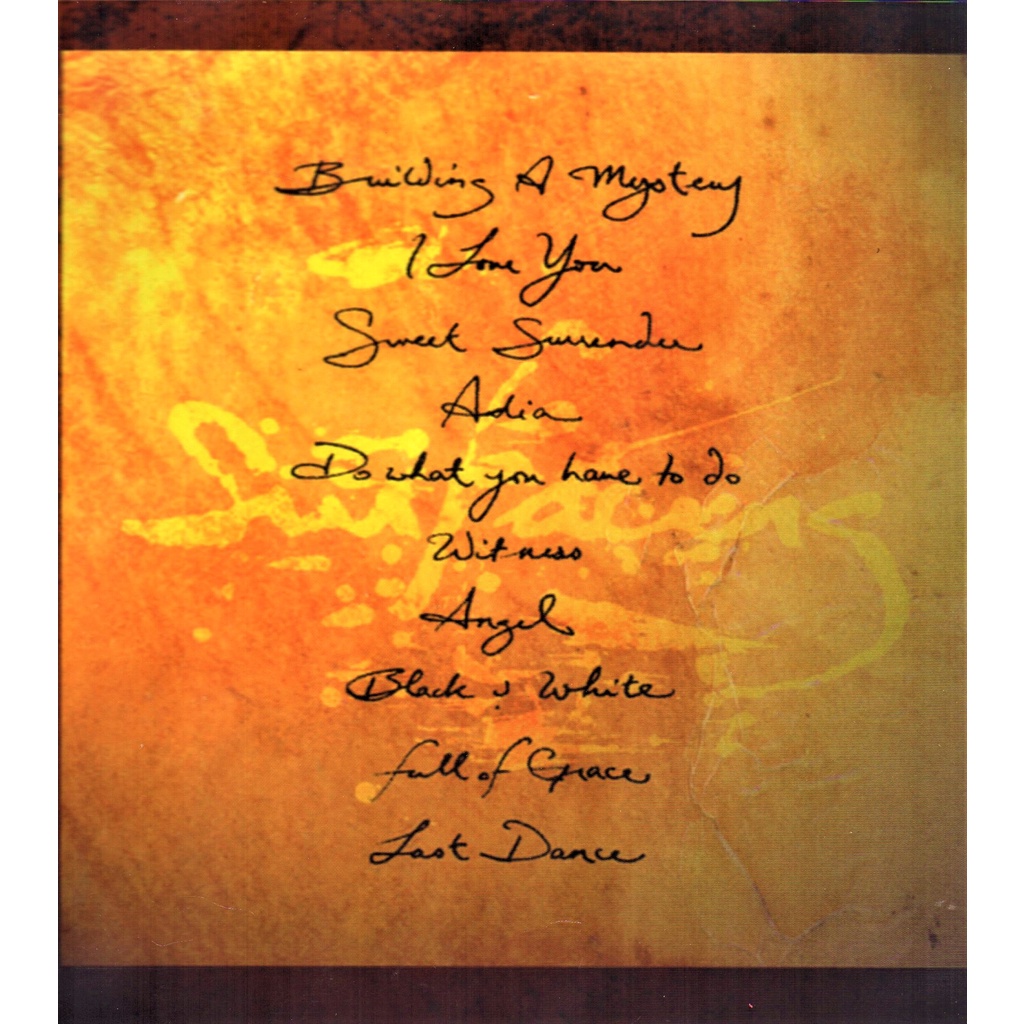 Building A Mystery
I Love You
Sweet Surrender
Adia
Do what you have to do
Surfacing
Witness
Angel
Black & White
full of Grace
Last Dance